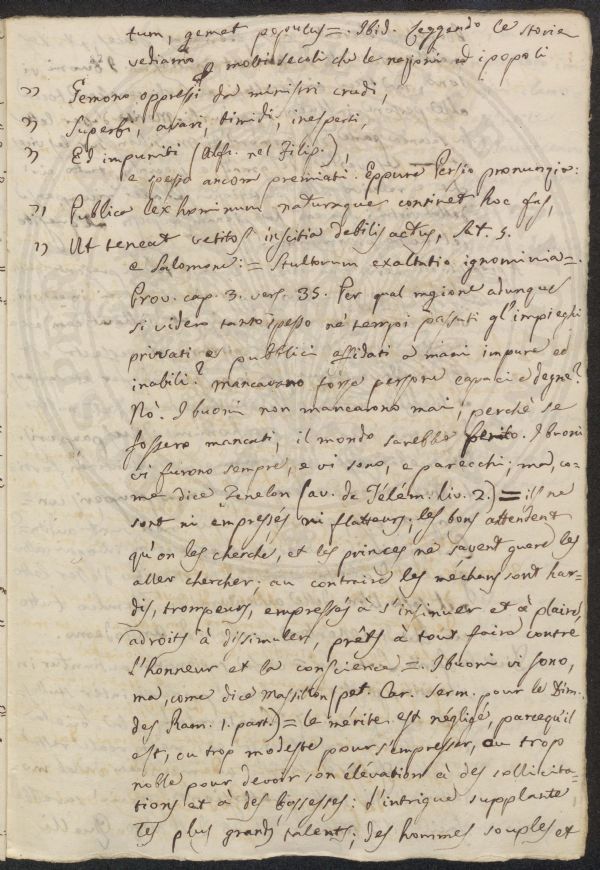 tum, gemet populus =. Ibid. Leggendo le storie
vediamo molti secoli che le nazioni ed i popoli
" Gemono oppressi da ministri crudi,
" Superbi, avari, timidi, inesperti,
" Ed impuniti (Alfi. nel Filip.),
e spesso ancora premiati. Eppure Persio pronunzia:
" Publica lex hominum naturaque continet hoc fas,
" Ut teneat vetitos inscitia debilis actus, Sat. 5.
e Salomone: = Stultorum exaltatio ignominia =.
Prov. cap. 3. vers. 35. Per qual ragione adunque
si videro tanto spesso ne' tempi passati gl'impieghi
privati e pubblici affidati a mani impure ed
inabili? mancavano forse persone capaci e degne?
Nò. I buoni non mancarono mai, perchè se
fossero mancati, il mondo sarebbe perito. I buoni
vi furono sempre, e vi sono, e parecchi; ma, co-
me dice Fenelon (av. de Télém. liv. 2.) = ils ne
sont ni empressés ni flatteurs; les bons attendent
qu'on les cherche, et les princes ne savent guere les
aller chercher; au contraire les méchans sont har-
dis, trompeurs, empressés à s'insinuer et à plaire,
adroits à dissimuler, prêts à tout faire contre
l'honneur et la conscience =. I buoni vi sono,
ma, come dice Massillon (pet. Car. Serm. pour le Dim.
des Ram. 1. part.) = le mérite est négligé, parcequ'il
est, ou trop modeste pour s'empresser, ou trop
noble pour devoir son élévation à des sollicita-
tions et à des bassesses: l'intrigue supplante
les plus grands talents; des hommes souples et